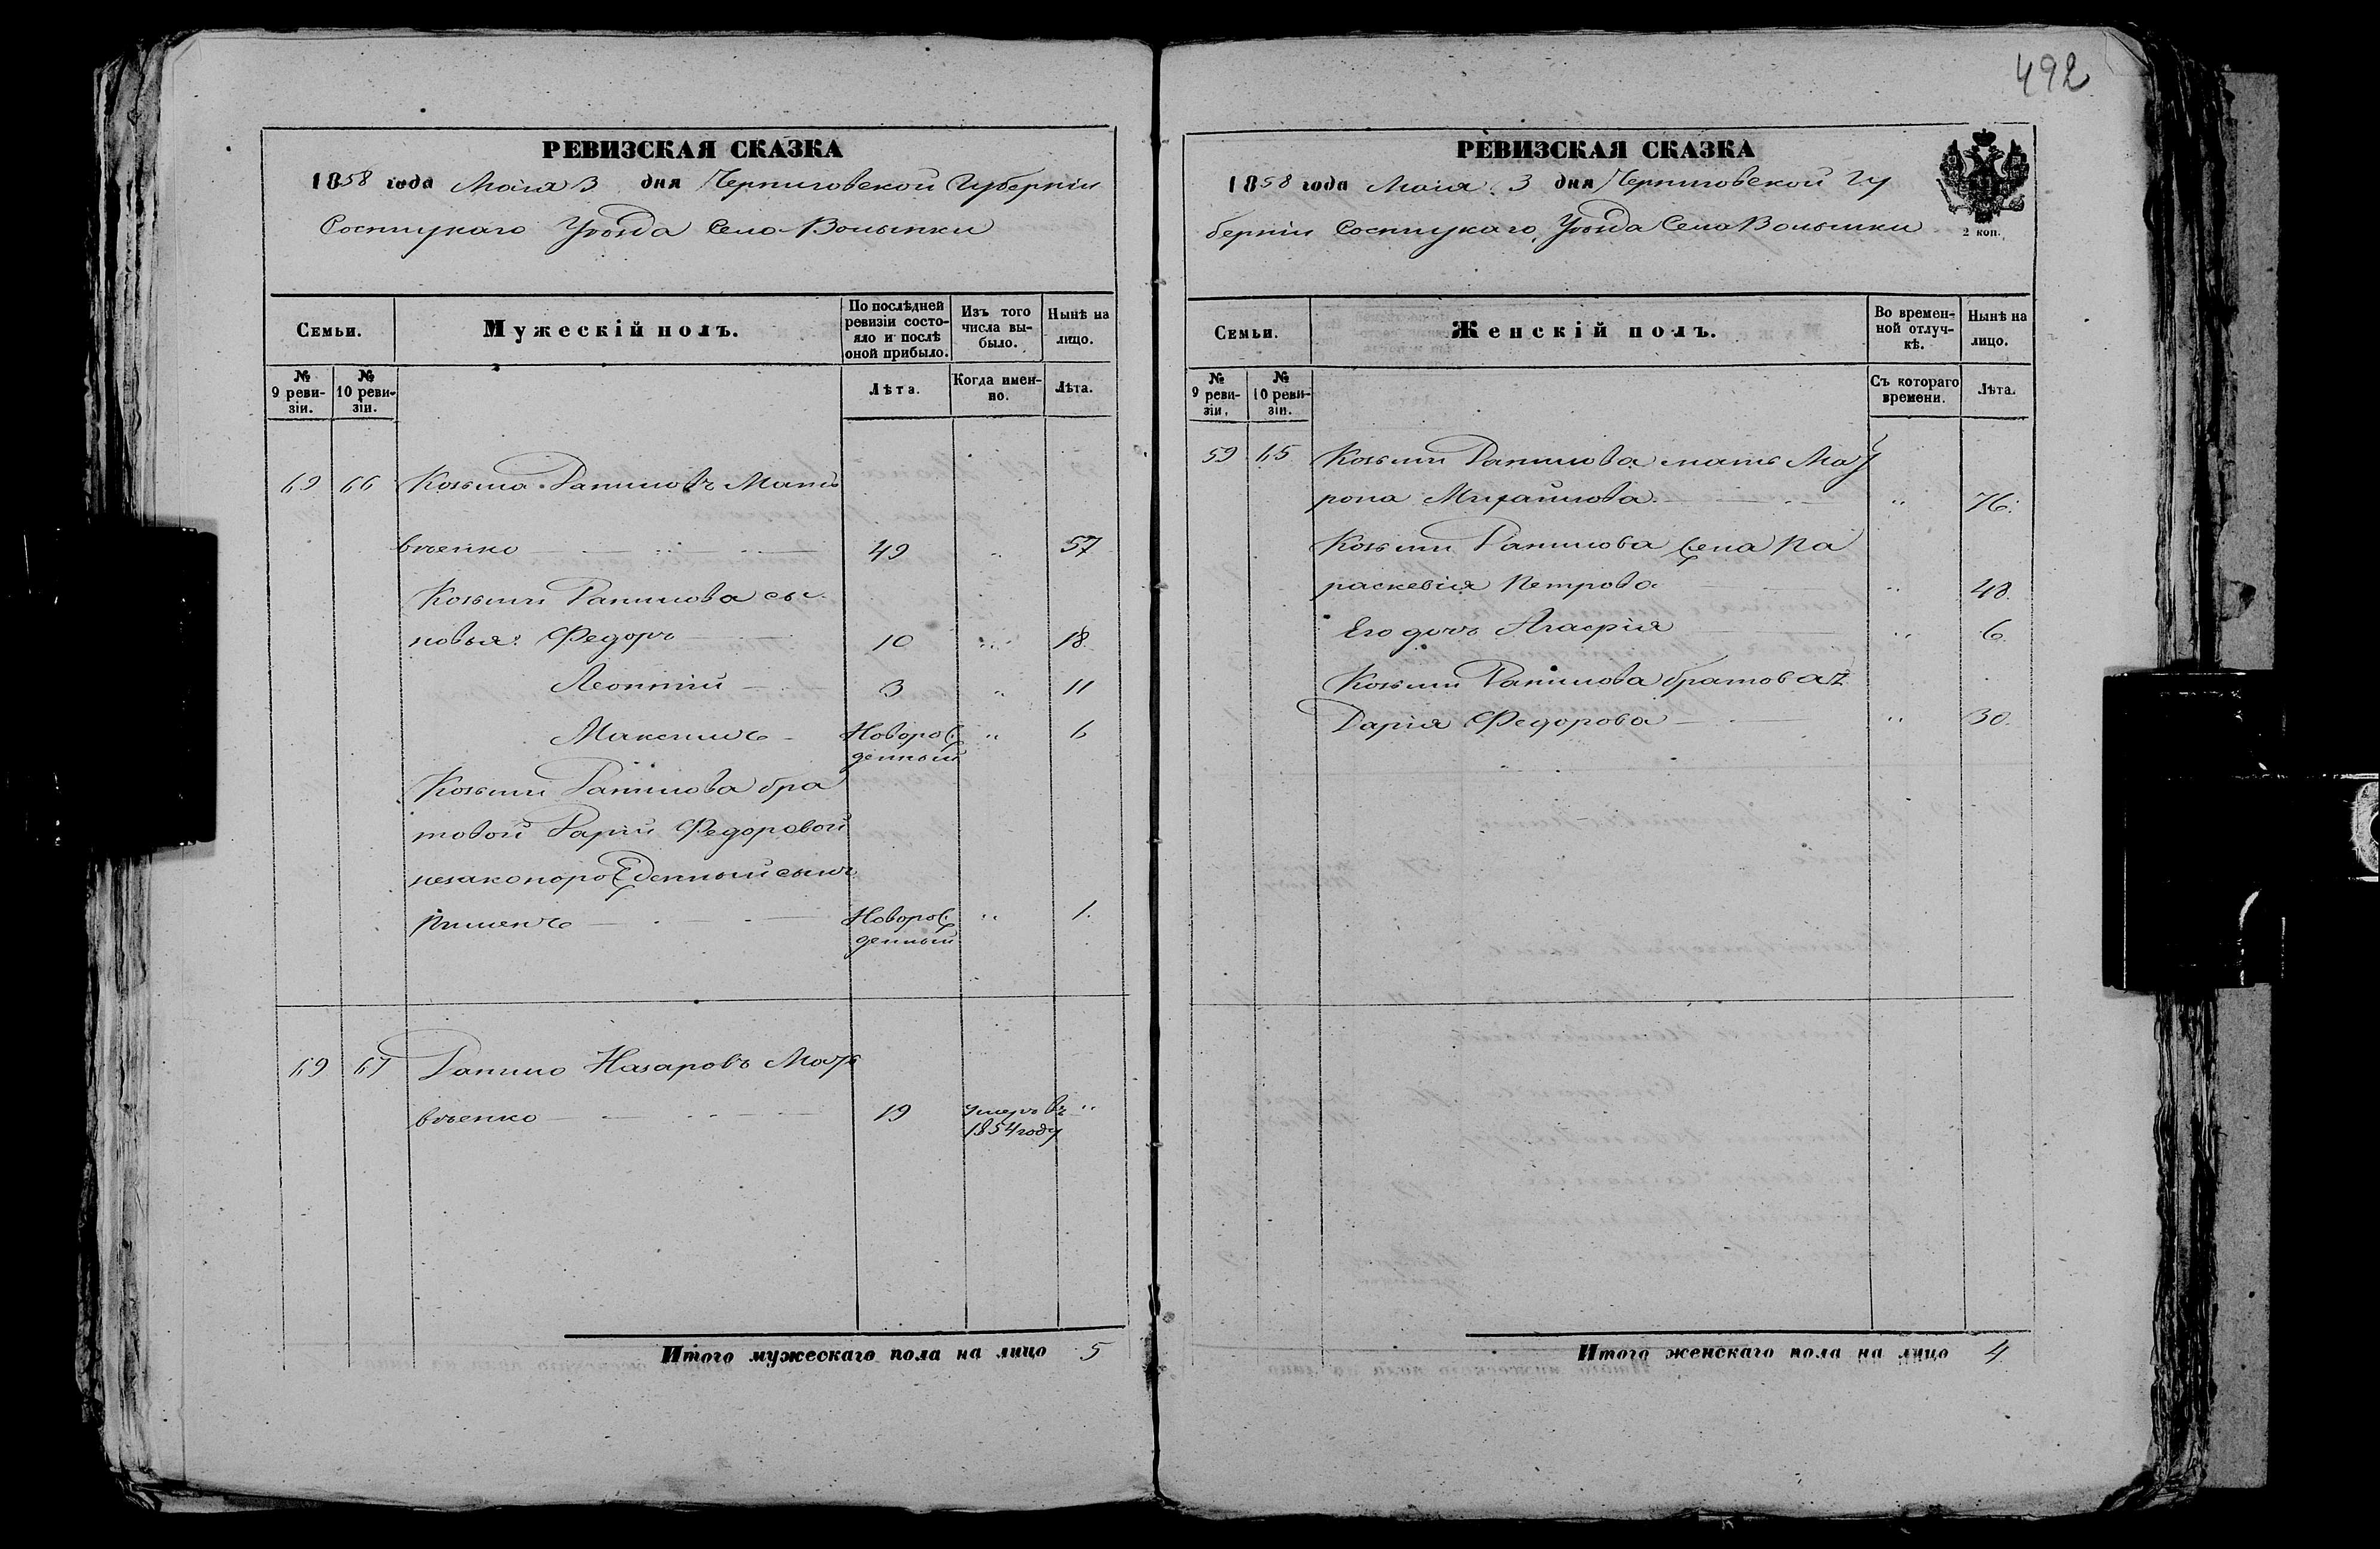 492
РЕВИЗСКАЯ СКАЗКА
1858 года Маія 3 дня Черниговской Губерніи
Сосницкаго Уѣзда Села Волынки
Семьи.
Мужескій полъ.
По послѣдней ревизіи состояло и послѣ оной прибыло.
Изъ того числа выбыло.
Нынѣ на лицо.
№ 9 ревизіи.
№ 10 ревизіи.
Лѣта.
Когда именно.
Лѣта.
69 66 Козьма Даниловъ Мать
вѣенко 49 " 57
Козьмы Данилова сы
новья: Федоръ 10 " 18.
Леонтій 3 " 11
Максимъ Новорож " 6
денный
Козьмы Данилова бра
товой Даріи Федоровой
незаконорожденный сынъ
Пименъ Новорож " 1.
денный
69 67 Данило Назаровъ Мать
вѣенко 19 умеръ въ "
1854 году
Итого мужескаго пола на лицо 5
РЕВИЗСКАЯ СКАЗКА
1858 года Маія 3 дня Черниговской Гу
берніи Сосницкаго Уѣзда Села Волынки
2 коп.
Семьи.
Женскій полъ.
Во временной отлучкѣ.
Нынѣ на лицо.
№ 9 ревизіи.
№ 10 ревизіи.
Съ котораго времени.
Лѣта.
59 65 Козьмы Данилова мать Мат
рона Михайлова " 76.
Козьмы Данилова жена Па
раскевія Петрова " 48.
Его дочь Агафія " 6.
Козьмы Данилова братовая
Дарія Федорова " 30.
Итого женскаго пола на лицо 4